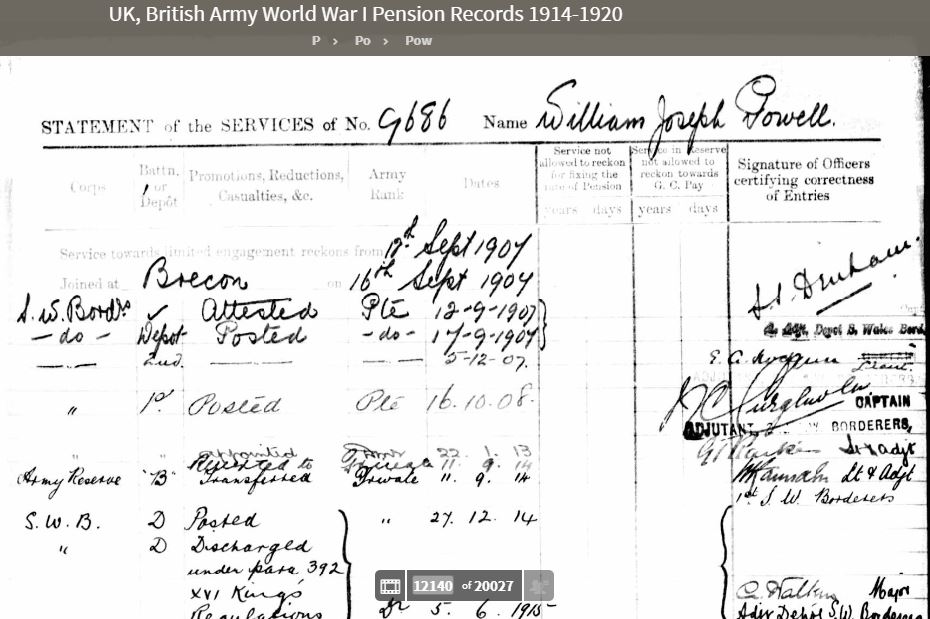 UK, British Army World War I Pension Records 1914-1920
P > Po > Pow
STATEMENT of the SERVICES of No. 9686 Name William Joseph Powell.
Corps
Battn. or Depôt
Promotions, Reductions, Casualties, &c.
Army Rank
Dates
Service not allowed to reckon for fixing the rate of Pension
years days
Service in Reserve not allowed to reckon towards G. C. Pay
years days
Signature of Officers certifying correctness of Entries
Service towards limited engagement reckons from 12th Sept 1907
Joined at Brecon on 16th Sept 1907
S. W. Bordrs ✓ Attested Pte 12-9-1907
- do - Depot Posted - do - 17-9-1907
2nd. 5-12-07.
" 1st. Posted Pte 16.10.08.
CAPTAIN
ADJUTANT BORDERERS,
" " appointed 22. 1. 13
Reverted to 11. 9. 14
Army Reserve "B" Transferred Private 11. 9. 14
Lt & Adjt
1st S. W. Borderers
S. W. B. D Posted " 27. 12. 14
" D Discharged
under para 392
XVI King's
Regulations Do 5. 6. 1915
Major
Adjt Depot S.W. Borderers
12140 of 20027